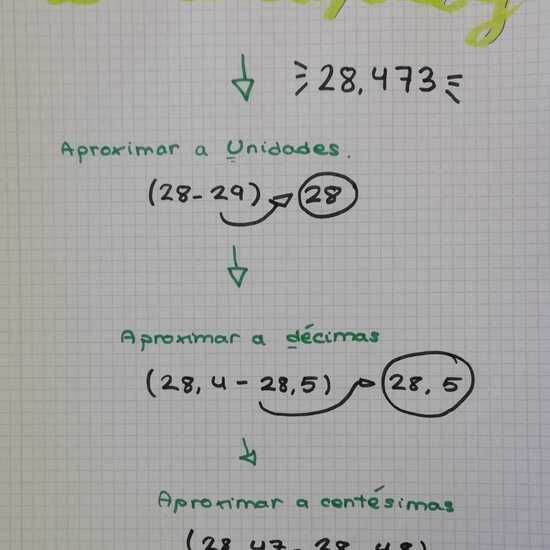 28,473
Aproximar a Unidades.
(28-29) 28
Aproximar a décimas
(28,4 - 28,5) 28,5
Aproximar a centésimas
(28,47 - 28,48)